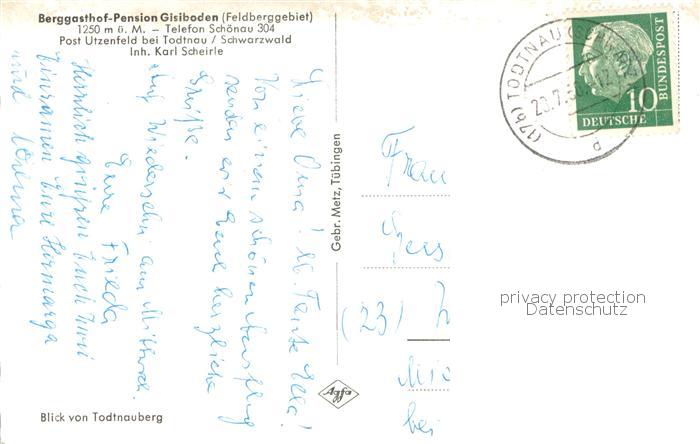 Berggasthof-Pension Gisiboden (Feldberggebiet)
1250 m ü. M. – Telefon Schönau 304
Post Utzenfeld bei Todtnau / Schwarzwald
Inh. Karl Scheirle
Liebe Oma! U. Tante Ella!
Von einem schönen Ausflug
senden wir Euch herzliche
Grüße.
Auf Wiedersehn am Mittwoch.
Eure Frieda
Herzlich grüßen Euch
Eure
und
Blick von Todtnauberg
Gebr. Metz, Tübingen
Agfa
(17b) TODTNAU (SCHWARZW
d
10
DEUTSCHE
BUNDESPOST
Frau
(23)
bei
privacy protection
Datenschutz